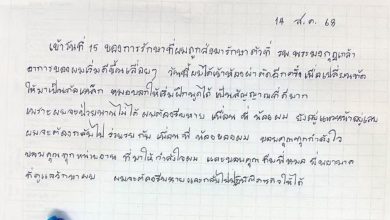 14 ส.ค. 68
เข้าวันที่ 15 ของการรักษาที่ผมถูกส่งมารักษาตัวที่ รพ. พระมงกุฎเกล้า
อาการของผมเริ่มดีขึ้นเรื่อยๆ วันนี้ผมได้เข้าห้องผ่าตัดอีกครั้ง เพื่อเปลี่ยนท่อ
ให้มาเป็นท่อเหล็ก หมอบอกให้เริ่มฝึกพูดได้ เป็นสัญญาณที่ดีมาก
เพราะผมจะป่วยนานไม่ได้ ผมต้องรีบหาย เพื่อน พี่ น้อง ผม ยังสู้แนวหน้าอยู่เลย
ผมจะต้องกลับไป ร่วมรบ กับ เพื่อน พี่ น้องของผม ขอบคุณทุกกำลังใจ
ขอบคุณทุกหน่วยงาน ที่มาให้กำลังใจผม และขอบคุณ ทีมพี่หมอ พี่พยาบาล
ที่ดูแลรักษาผม ผมจะต้องรีบหายและกลับไปปฏิบัติภารกิจให้ได้